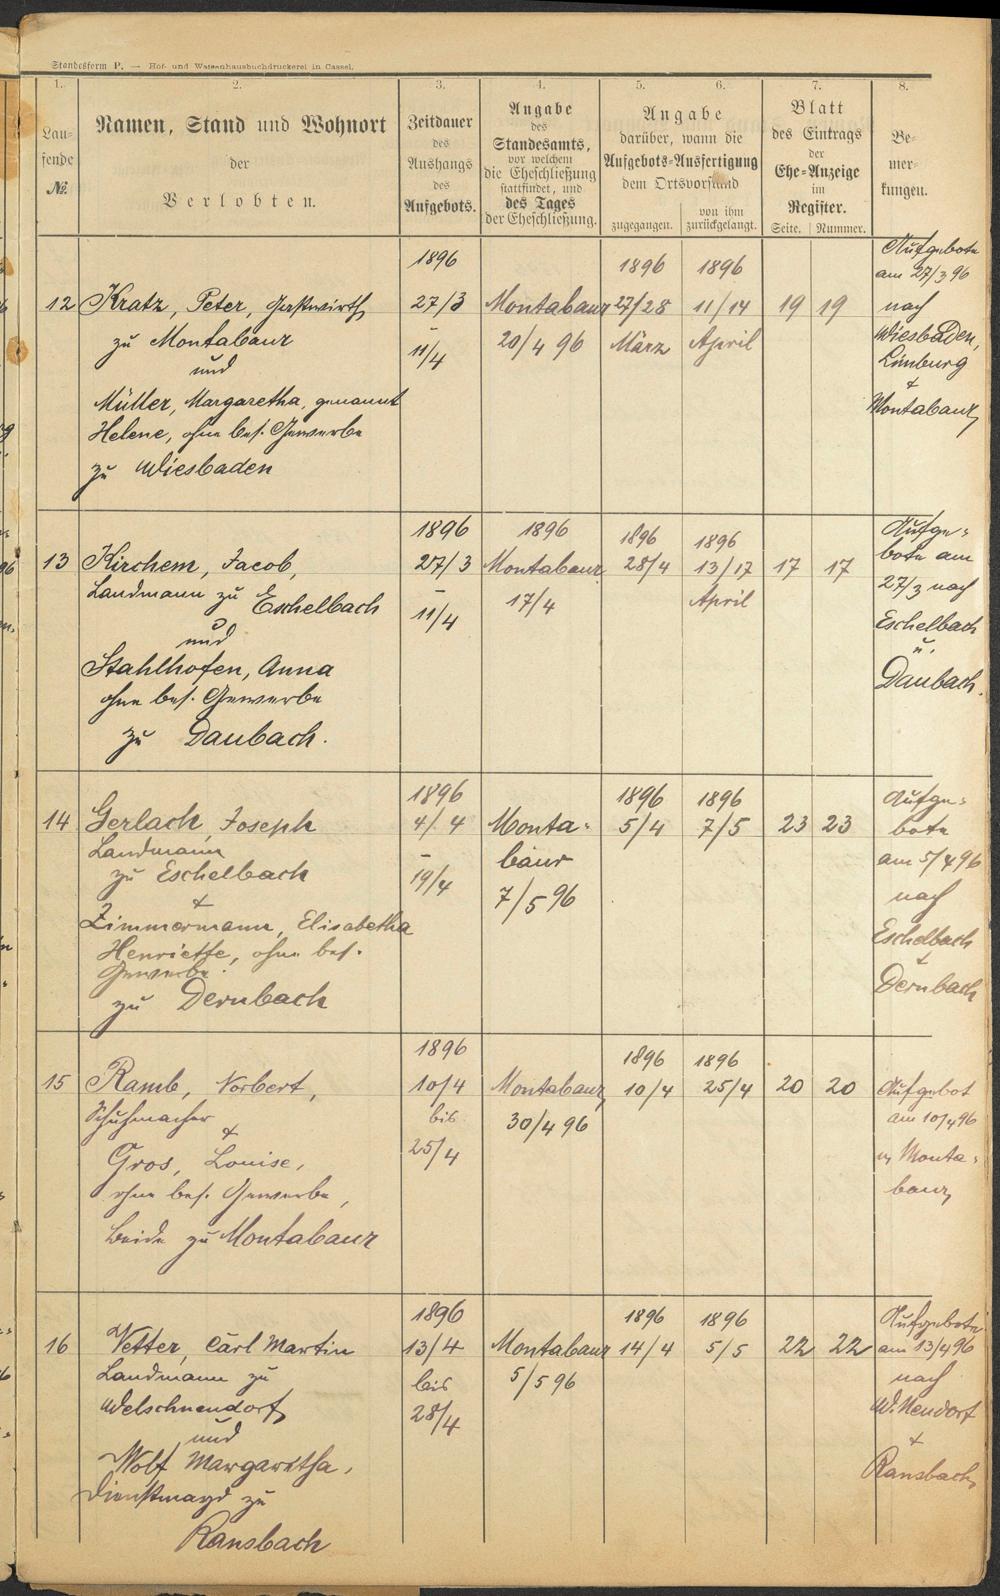 Standesform P. — Hof- und Waisenhausbuchdruckerei in Cassel.
1.
2.
3.
4.
5.
6.
7.
8.
Lau-
fende
№.
Namen, Stand und Wohnort
der
Verlobten.
Zeitdauer
des
Aushangs
des
Aufgebots.
Angabe
des
Standesamts,
vor welchem
die Eheschließung
stattfindet, und
des Tages
der Eheschließung.
Angabe
darüber, wann die
Aufgebots-Ausfertigung
dem Ortsvorstand
zugegangen.
von ihm
zurückgelangt.
Blatt
des Eintrags
der
Ehe-Anzeige
im
Register.
Seite.
Nummer.
Be-
mer-
kungen.
12
Kratz, Peter, Gastwirth
zu Montabaur
und
Müller, Margaretha, genannt
Helene, ohne bes. Gewerbe
zu Wiesbaden
1896
27/3
–
11/4
Montabaur
20/4 96
1896
27/28
März
1896
11/14
April
19
19
Aufgebote
am 27/3 96
nach
Wiesbaden,
Limburg
+
Montabaur
13
Kirchem, Jacob,
Landmann zu Eschelbach
und
Stahlhofen, Anna
ohne bes. Gewerbe
zu Daubach.
1896
27/3
–
11/4
1896
Montabaur
17/4
1896
28/4
1896
13/17
April
17
17
Aufge-
bote am
27/3 nach
Eschelbach
u.
Daubach.
14
Gerlach, Joseph
Landmann
zu Eschelbach
+
Zimmermann, Elisabetha
Henriette, ohne bes.
Gewerbe
zu Dernbach
1896
4/4
–
19/4
Monta-
baur
7/5 96
1896
5/4
1896
7/5
23
23
Aufge-
bote
am 5/4 96
nach
Eschelbach
+
Dernbach
15
Ramb, Norbert,
Schuhmacher
+
Gros, Louise,
ohne bes. Gewerbe,
beide zu Montabaur
1896
10/4
bis
25/4
Montabaur
30/4 96
1896
10/4
1896
25/4
20
20
Aufgebot
am 10/4 96
in Monta-
baur
16
Vetter, Carl Martin
Landmann zu
Welschneudorf
und
Wolf Margaretha,
Dienstmagd zu
Ransbach
1896
13/4
bis
28/4
Montabaur
5/5 96
1896
14/4
1896
5/5
22
22
Aufgebote
am 13/4 96
nach
W. Neudorf
+
Ransbach